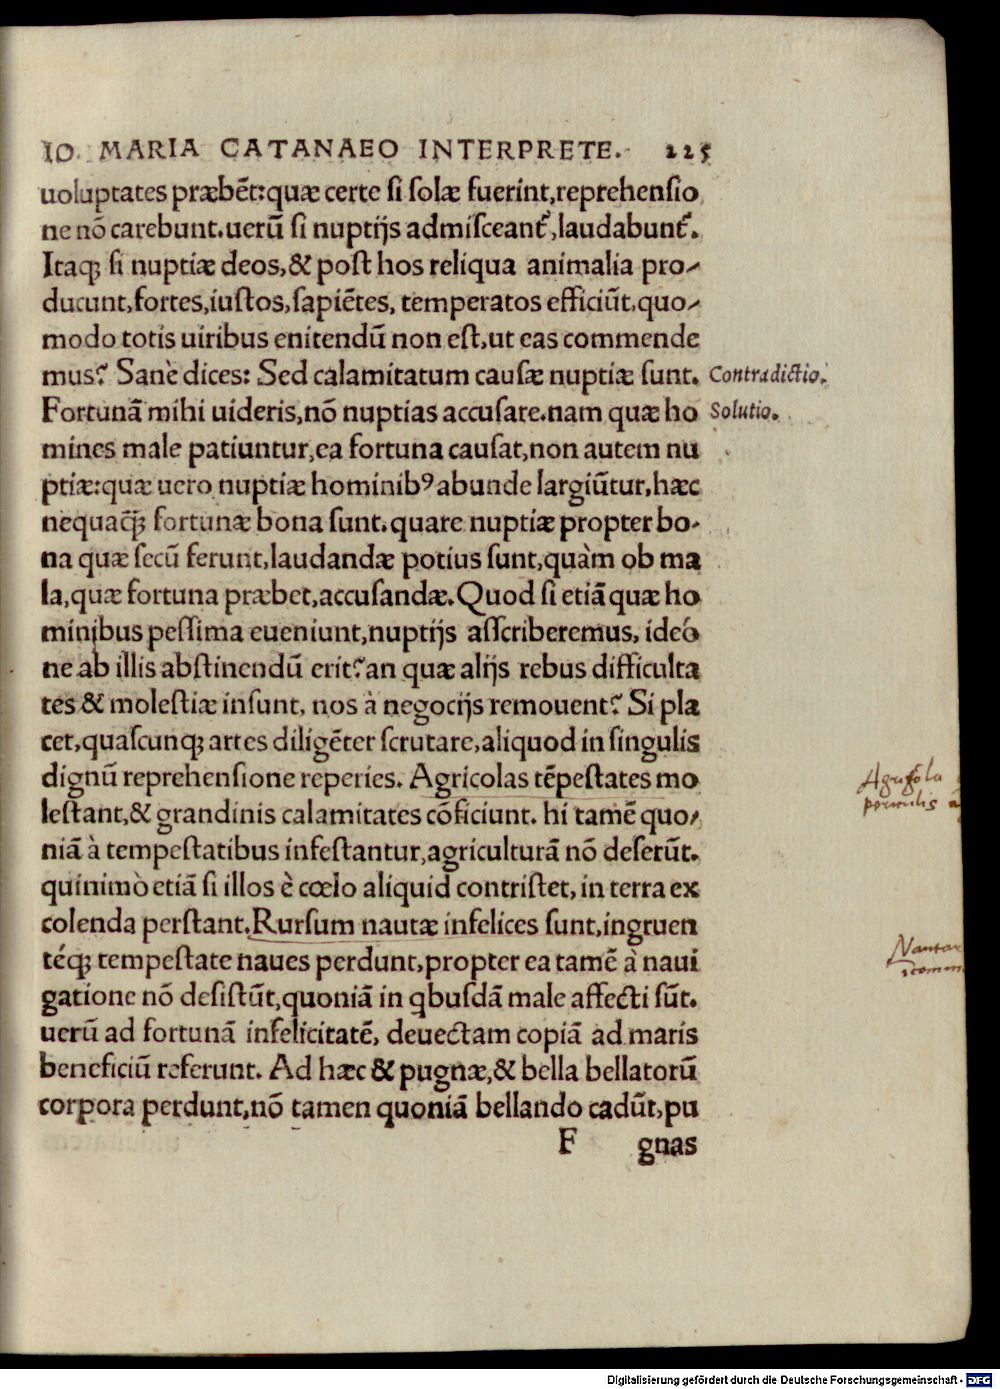 IO. MARIA CATANAEO INTERPRETE. 225
uoluptates præbẽt:quæ certe si solæ fuerint,reprehensio
ne nõ carebunt.uerũ si nuptijs admisceant᷒,laudabunt᷒.
Itaq; si nuptiæ deos,& post hos reliqua animalia pro-
ducunt,fortes,iustos,sapiẽtes, temperatos efficiũt,quo-
modo totis uiribus enitendũ non est,ut eas commende
mus? Sanè dices: Sed calamitatum causæ nuptiæ sunt.
Contradictio.
Fortunã mihi uideris,nõ nuptias accusare.nam quæ ho
Solutio.
mines male patiuntur,ea fortuna causat,non autem nu
ptiæ:quæ uero nuptiæ hominibꝰ abunde largiũtur,hæc
nequaq̃; fortunæ bona sunt.quare nuptiæ propter bo-
na quæ secũ ferunt,laudandæ potius sunt,quàm ob ma
la,quæ fortuna præbet,accusandæ.Quod si etiã quæ ho
minibus pessima eueniunt,nuptijs asscriberemus, ideó
ne ab illis abstinendũ erit?an quæ alijs rebus difficulta
tes & molestiæ insunt, nos à negocijs remouent? Si pla
cet,quascunq; artes diligẽter scrutare,aliquod in singulis
dignũ reprehensione reperies. Agricolas tẽpestates mo
lestant,& grandinis calamitates cõficiunt. hi tamẽ quo-
niã à tempestatibus infestantur,agriculturã nõ deserũt.
quinimò etiã si illos è cœlo aliquid contristet, in terra ex
colenda perstant.Rursum nautæ infelices sunt,ingruen
téq; tempestate naues perdunt,propter ea tamẽ à naui
gatione nõ desistũt,quoniã in qbusdã male affecti sũt.
uerũ ad fortunã infelicitatẽ, deuectam copiã ad maris
beneficiũ referunt. Ad hæc & pugnæ,& bella bellatorũ
corpora perdunt,nõ tamen quoniã bellando cadũt,pu
F gnas
Digitalisierung gefördert durch die Deutsche Forschungsgemeinschaft - DFG